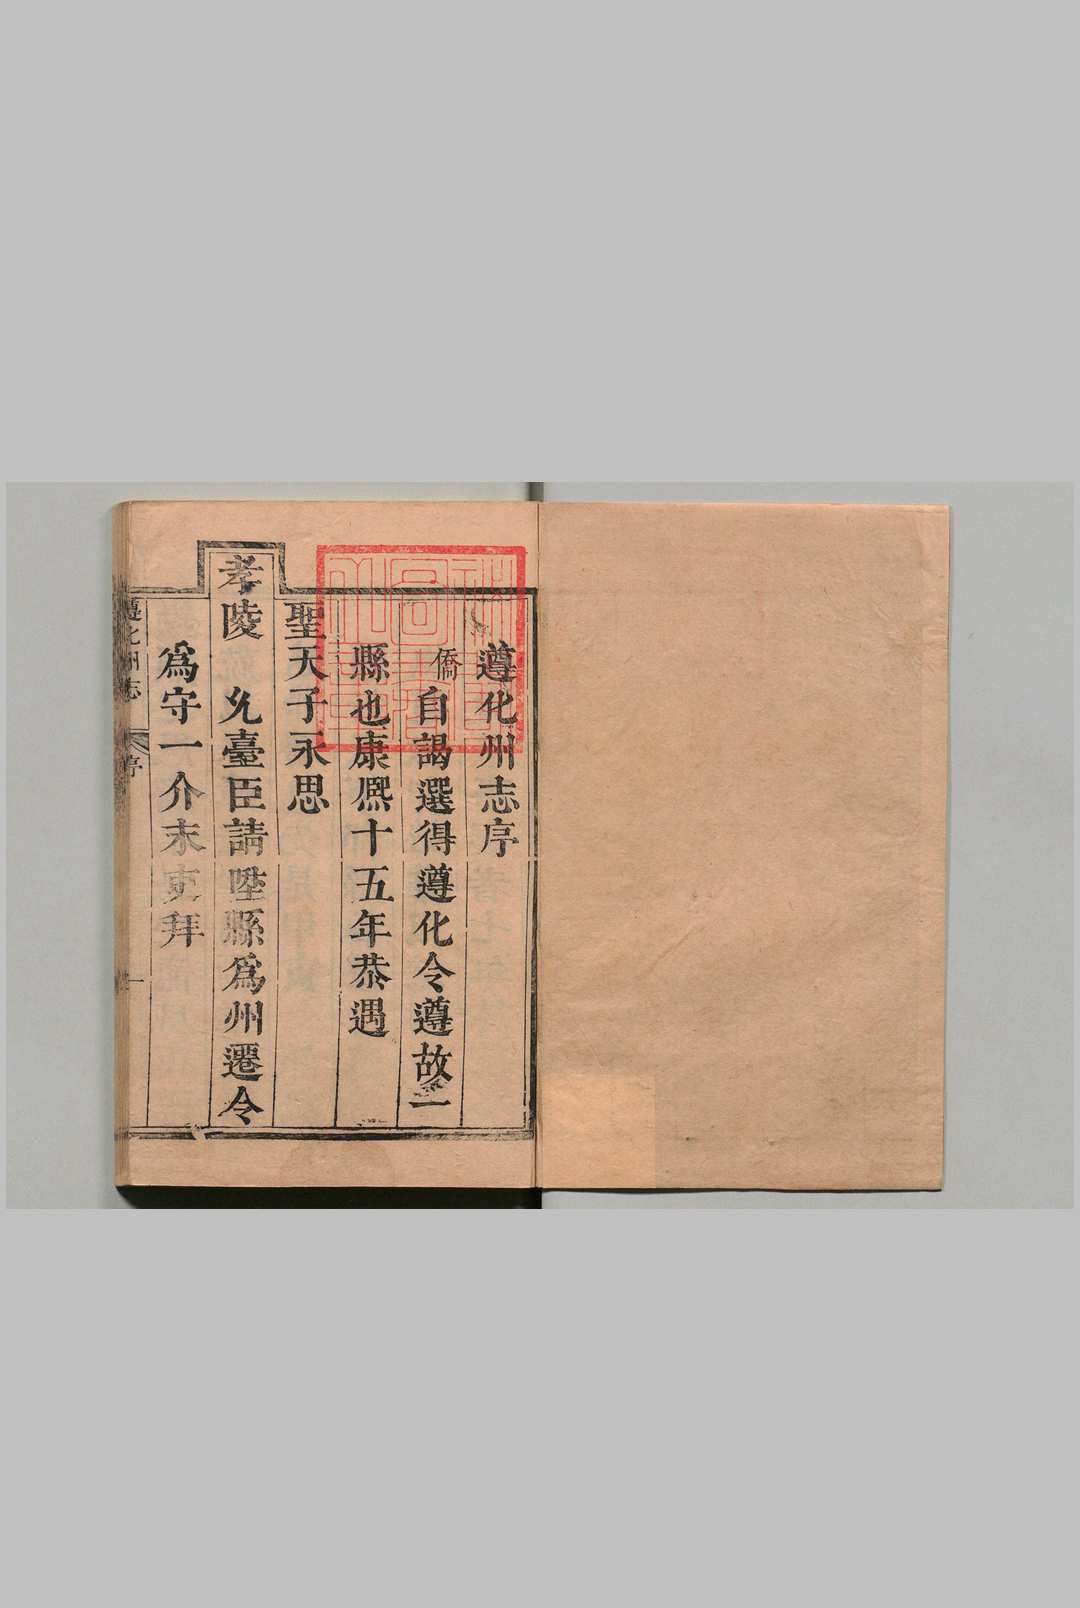 遵化州志序
僑自謁選得遵化令遵故一
縣也康熈十五年恭遇
聖天子永思
孝陵允臺臣請陞縣爲州遷令
爲守一介末吏拜
遵化州志
序
一